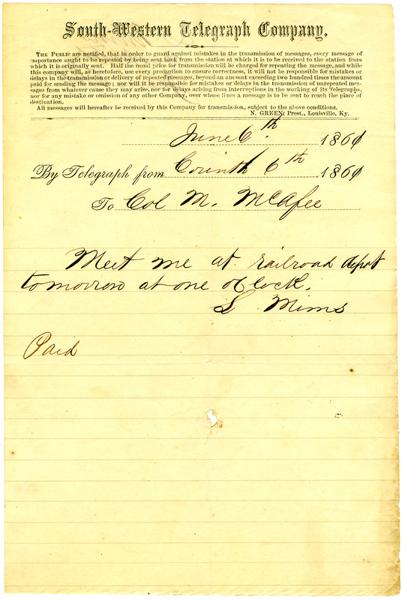 South-Western Telegraph Company.
The Public are notified, that in order to guard against mistakes in the transmission of messages, every message of
importance ought to be repeated by being sent back from the station at which it is to be received to the station from
which it is originally sent. Half the usual price for transmission will be charged for repeating the message, and while
this company will, as heretofore, use every precaution to ensure correctness, it will not be responsible for mistakes or
delays in the transmission or delivery of repeated messages, beyond an amount exceeding two hundred times the amount
paid for sending the message; nor will it be responsible for mistakes or delays in the transmission of unrepeated mes-
sages from whatever cause they may arise, nor for delays arising from interruptions in the working of its Telegraphs,
nor for any mistake or omission of any other Company, over whose lines a message is to be sent to reach the place of
destination.
All messages will hereafter be received by this Company for transmission, subject to the above conditions.
N. GREEN, Prest., Louisville, Ky.
June 6th 1861
By Telegraph from Corinth 6th 1861
To Col M. McAfee
Meet me at railroad depot
tomorrow at one oclock.
S Mims
Paid